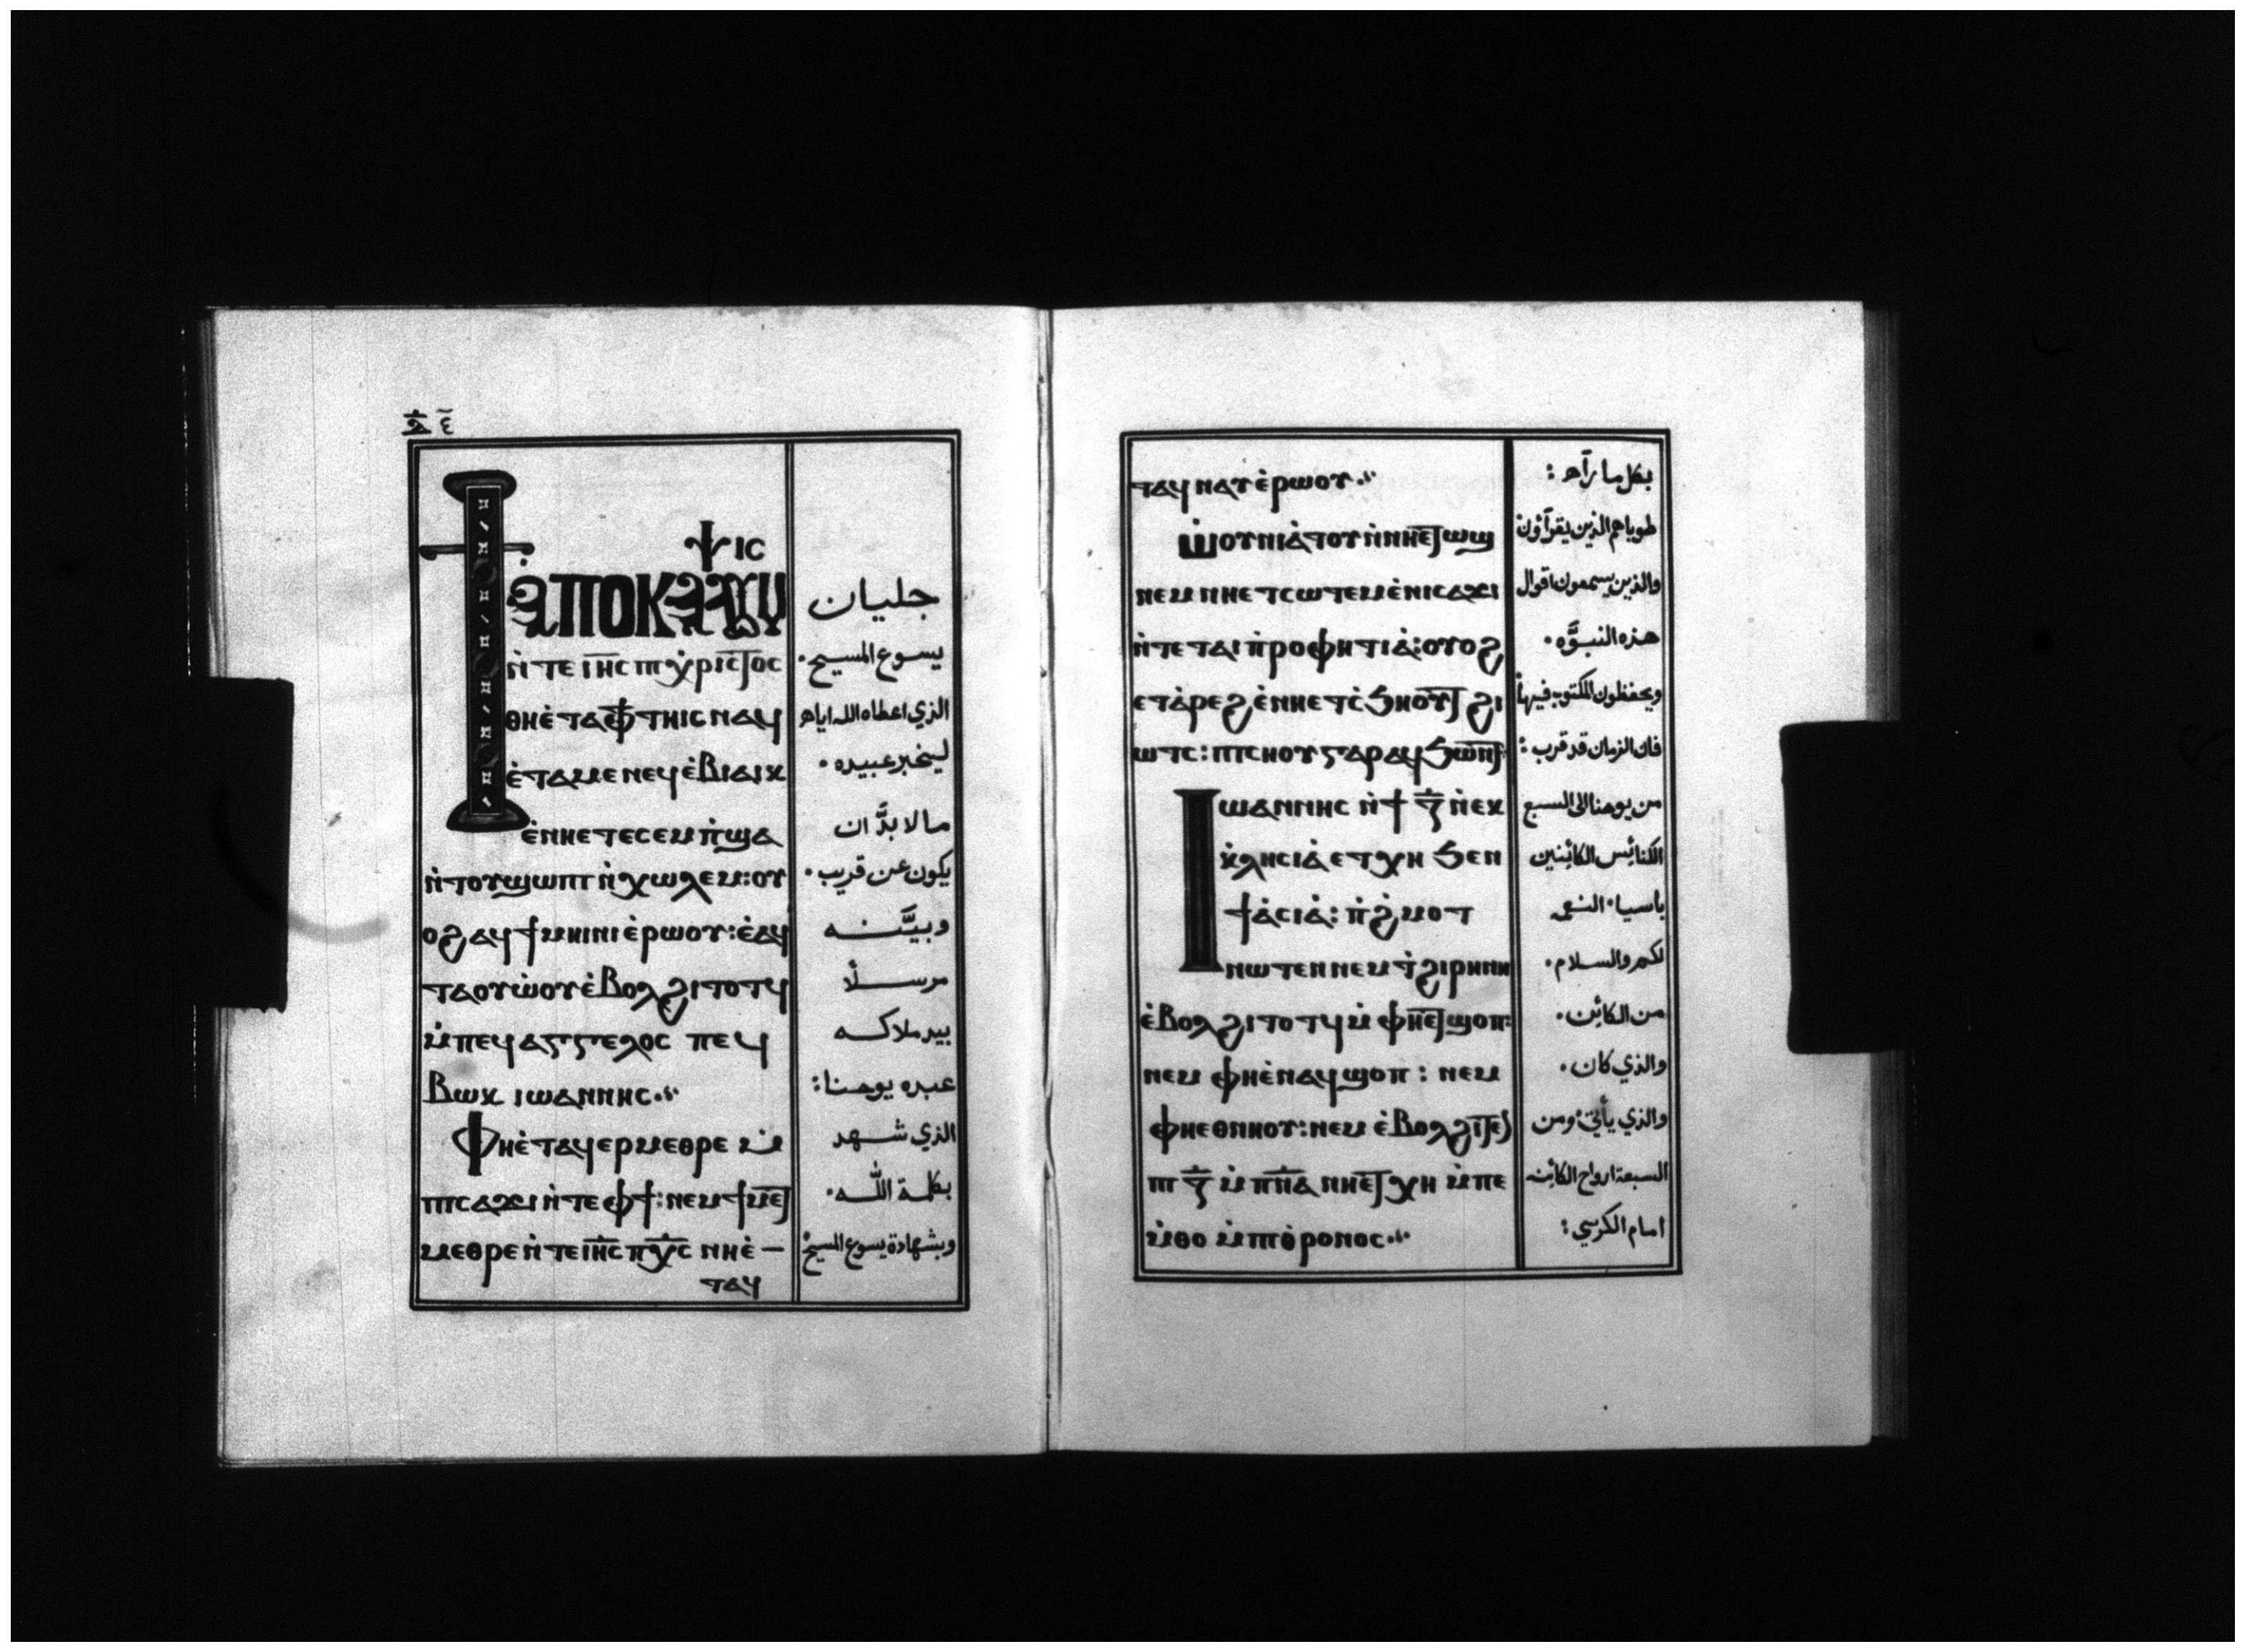 ⲁ̅ ٤
ϯⲁⲡⲟⲕⲁⲗⲩⲙⲯⲓⲥ
ⲛ̀ⲧⲉ ⲓⲏ̅ⲥ ⲡⲓⲭ̀ⲣⲓⲥⲧⲟⲥ
ⲑⲏⲉ̀ⲧⲁⲫϯ ⲧⲏⲓⲥ ⲛⲁϥ
ⲉ̀ⲧⲁⲙⲉ ⲛⲉϥⲉ̀ⲃⲓⲁⲓⲕ
ⲉ̀ⲛⲏⲉⲧⲉⲥⲉⲙⲡ̀ϣⲁ
ⲛ̀ⲧⲟⲩϣⲱⲡⲓ ⲛ̀ⲭⲱⲗⲉⲙ: ⲟⲩ
ⲟϩ ⲁϥϯⲙⲏⲓⲛⲓ ⲉ̀ⲣⲱⲟⲩ: ⲉ̀ⲁϥ
ⲧⲁⲟⲩⲱ̀ⲟⲩ ⲉ̀ⲃⲟⲗϩⲓⲧⲟⲧϥ
ⲙ̀ⲡⲉϥⲁⲅⲅⲉⲗⲟⲥ ⲡⲉϥ
ⲃⲱⲕ ⲓⲱⲁⲛⲛⲏⲥ
ⲫⲏⲉ̀ⲧⲁϥⲉⲣⲙⲉⲑⲣⲉ ⲙ̀
ⲡⲓⲥⲁϫⲓ ⲛ̀ⲧⲉ ⲫϯ: ⲛⲉⲙ ϯⲙⲉⲧ
ⲙⲉⲑⲣⲉ ⲛ̀ⲧⲉ ⲓⲏ̅ⲥ ⲡⲭ̅ⲥ ⲛⲏⲉ̀ –
ⲧⲁϥ
جليان
يسوع المسيح٠
الذي اعطاه الله اياه
ليخبر عبيده٠
مالا بدَّ ان
يكون عن قريب٠
وبيَّنه
مرسلًا
بيد ملاكه
عبده يوحنا:
الذي شهد
بكلمة اللّه٠
وبشهادة يسوع المسيح
ⲧⲁϥ ⲛⲁⲩ ⲉ̀ⲣⲱⲟⲩ
ⲱ̀ⲟⲩⲛⲓⲁ̀ⲧⲟⲩ ⲛ̀ⲛⲏⲉⲧⲱϣ
ⲛⲉⲙ ⲛⲏⲉⲧⲥⲱⲧⲉⲙ ⲉ̀ⲛⲓⲥⲁϫⲓ
ⲛ̀ⲧⲉ ⲧⲁⲓⲡ̀ⲣⲟⲫⲏⲧⲓⲁ̀: ⲟⲩⲟϩ
ⲉⲧⲁ̀ⲣⲉϩ ⲉ̀ⲛⲏⲉⲧⲥ̀ϧⲏⲟⲩⲧ ϩⲓ
ⲱⲧⲥ: ⲡⲓⲥⲏⲟⲩ ⲅⲁⲣ ⲁϥϧⲱⲛⲧ
ⲓⲱⲁⲛⲛⲏⲥ ⲛ̀ϯ ⲍ̅ ⲛ̀ⲉⲕ
ⲕ̀ⲗⲏⲥⲓⲁ̀ ⲉⲧⲭⲏ ϧⲉⲛ
ϯⲁ̀ⲥⲓⲁ̀: ⲡ̀ϩ̀ⲙⲟⲧ
ⲛⲱⲧⲉⲛ ⲛⲉⲙ ϯ̀ϩⲓⲣⲏⲛⲏ
ⲉ̀ⲃⲟⲗϩⲓⲧⲟⲧϥ ⲙ̀ⲫⲏⲉⲧϣⲟⲡ:
ⲛⲉⲙ ⲫⲏⲉ̀ⲛⲁϥϣⲟⲡ: ⲛⲉⲙ
ⲫⲏⲉⲑⲛⲏⲟⲩ: ⲛⲉⲙ ⲉ̀ⲃⲟⲗϩⲓⲧⲉⲛ
ⲡⲓ ⲍ̅ ⲙ̀ⲡⲛ̅ⲁ ⲛⲏⲉⲧⲭⲏ ⲙ̀ⲡⲉ
ⲙ̀ⲑⲟ ⲙ̀ⲡⲓⲑ̀ⲣⲟⲛⲟⲥ
بكل ما رآه:
طوباهم الذين يقرآون
والذين يسمعون اقوال
هذه النبوَّه٠
ويحفظون المكتوب فيها
فان الزمان قد قرب:
من يوحنا الى السبع
الكنائس الكائنين
باسيا٠ النعمه
لكم والسلام٠
من الكائن٠
والذي كان٠
والذي يأتي٠ ومن
السبعة ارواح الكائنه
امام الكرسي: